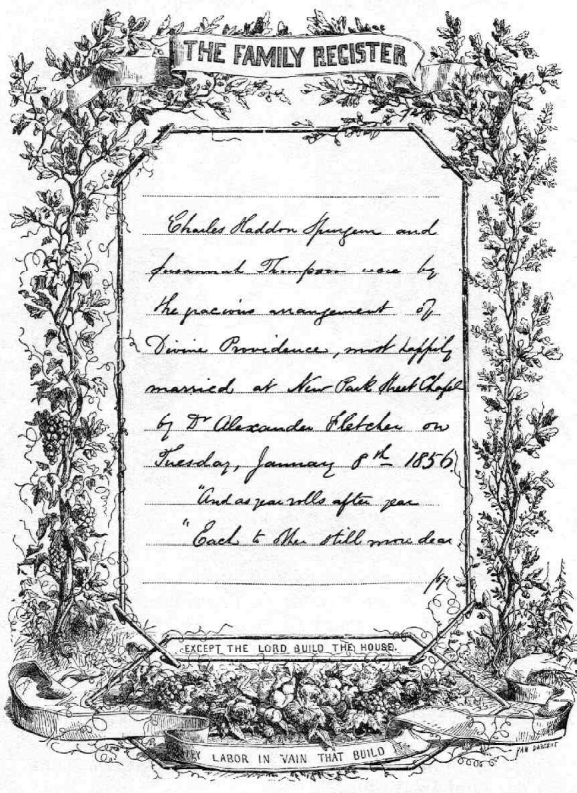 THE FAMILY REGISTER
Charles Haddon Spurgeon and
Susannah Thompson were by
the gracious arrangement of
Divine Providence, most happily
married at New Park Street Chapel
by Dr Alexander Fletcher on
Tuesday, January 8th 1856
"And as year rolls after year
"Each to other still more dear
EXCEPT THE LORD BUILD THE HOUSE.
THEY LABOR IN VAIN THAT BUILD